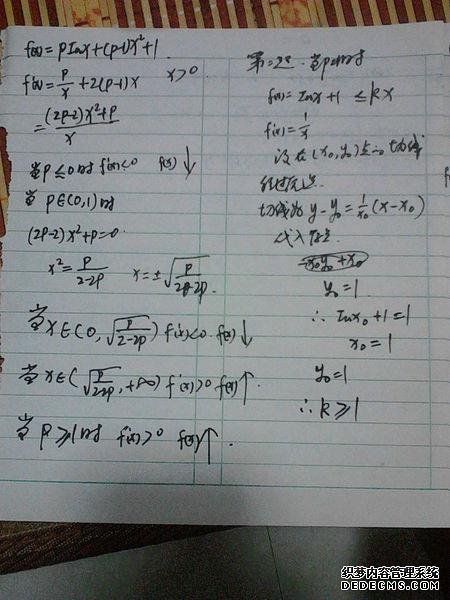 f(x)=plnx+(p-1)x²+1
f'(x)=p/x+2(p-1)x  x>0
=((2p-2)x²+p)/x
当p≤0时 f'(x)<0 f(x)↓
当p∈(0,1)时
(2p-2)x²+p=0
x²=p/(2-2p)  x=±√(p/(2-2p))
当x∈(0,√(p/(2-2p))) f'(x)<0 f(x)↓
当x∈(√(p/(2-2p)),+∞) f'(x)>0 f(x)↑
当p≥1时 f'(x)>0 f(x)↑.
第二问. 当p=1时
f(x)=lnx+1≤kx
f'(x)=1/x
设在(x₀,y₀)点的切线
经过原点.
切线为 y-y₀=1/x₀(x-x₀)
代入原点.
y₀=1
∴lnx₀+1=1
x₀=1
y₀=1
∴k≥1
织梦内容管理系统
DEDECMS.COM